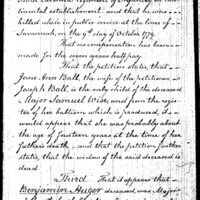 mental establishment and that he was
killed while in public service at the time of
Savannah, on the 9th day of October 1779.
That no compensation has been
made for the seven years half pay.
That the petition states, that
Jane Ann Ball, the wife of the petitioner
Joseph Ball, is the only child of the deceased
Major Samuel Wise, and from the regis
ter of her baptism which is produced, it
would appear that she was probably about
the age of fourteen years at the time of her
fathers death, and that the petition further
states, that the widow of the said deceased is
dead.
Third. That it appears that
Benjamin Huger deceased, was Major